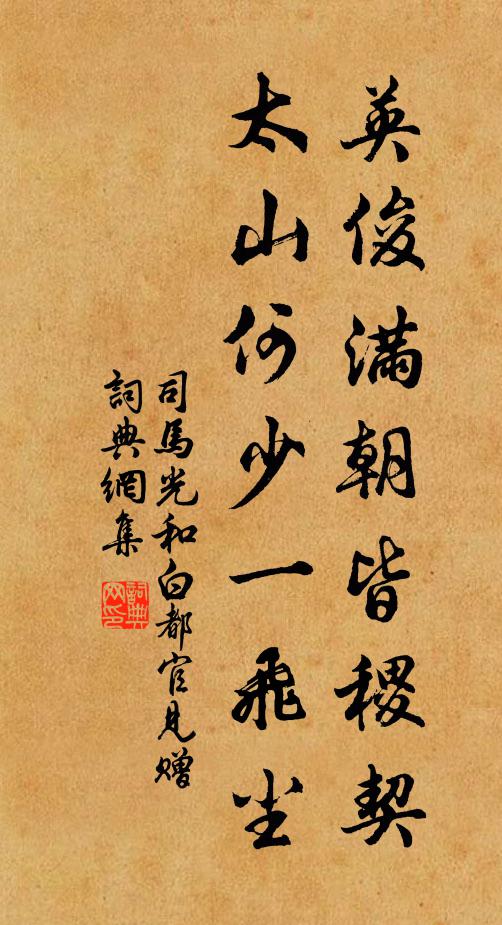 英俊滿朝皆稷契
太山何少一飛尘
司馬光和白都官見贈
詞典網集
詞典网印